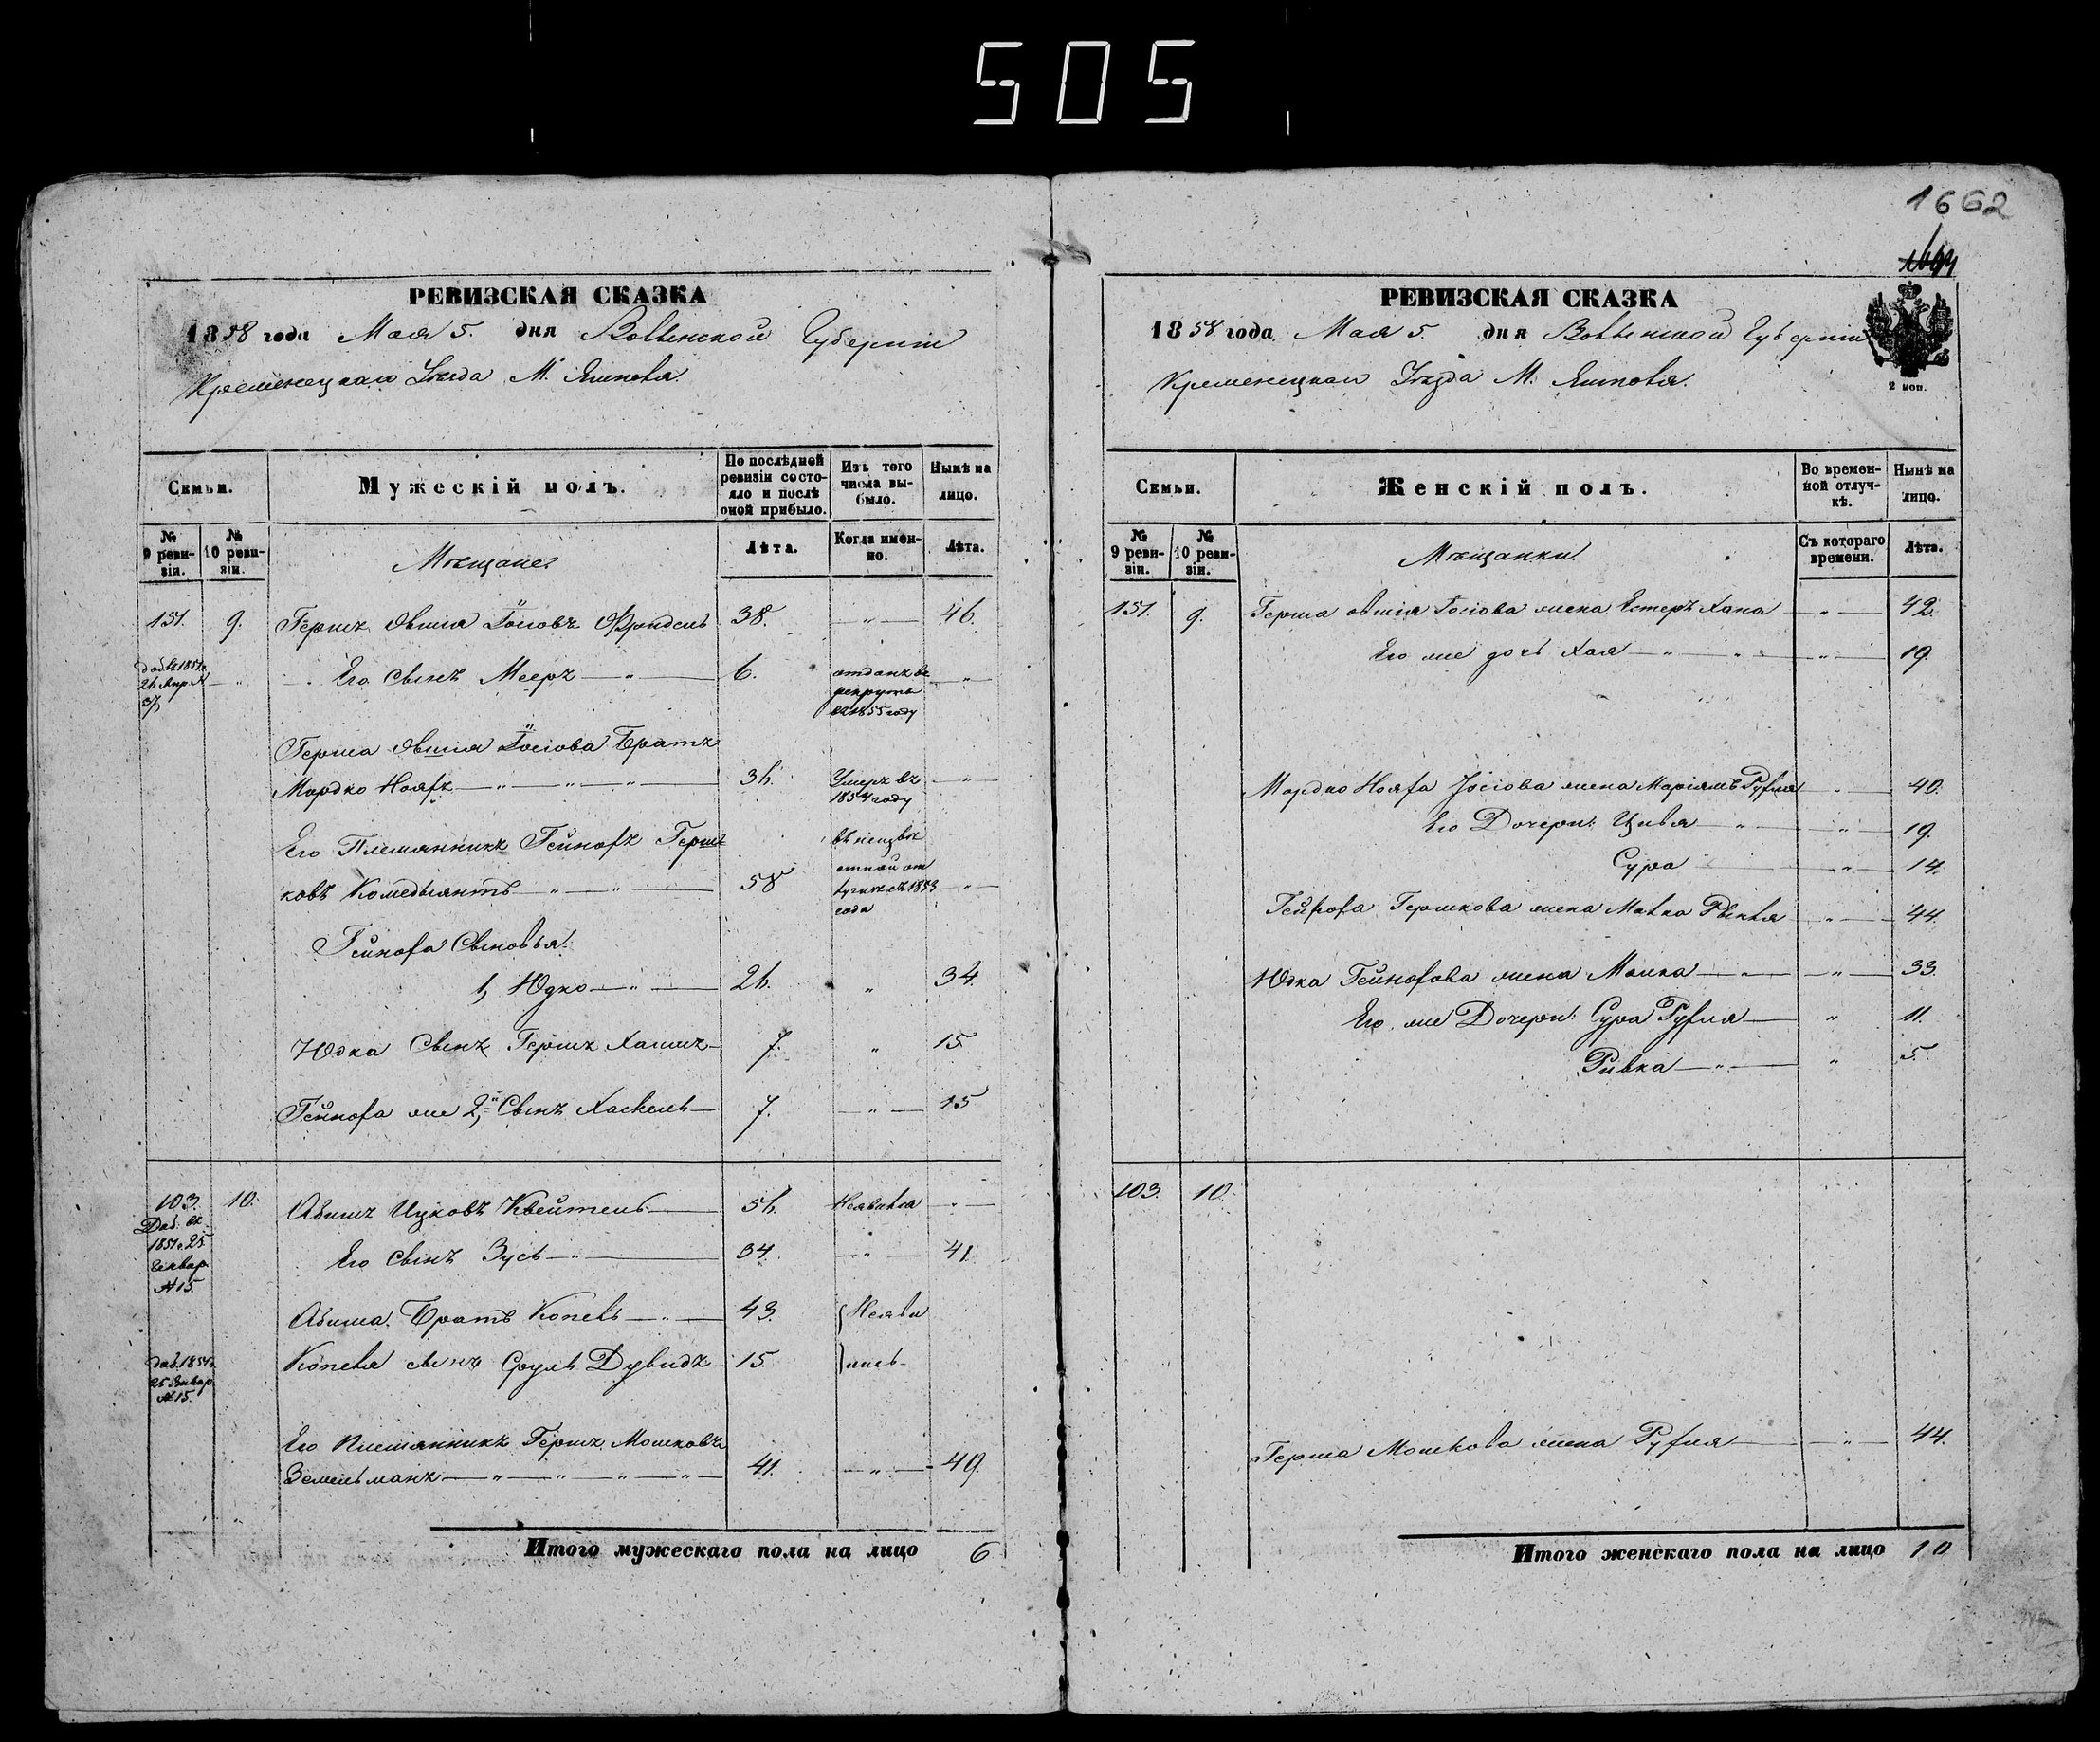 505
1662
РЕВИЗСКАЯ СКАЗКА
1858 года Мая 5. дня Волынской Губерніи
Кременецкаго Уѣзда М. Ямполя.
Семьи.
Мужескій полъ.
По послѣдней ревизіи состояло и послѣ оной прибыло.
Изъ того числа выбыло.
Нынѣ на лицо.
№ 9 ревизіи.
№ 10 ревизіи.
Мѣщане
Лѣта.
Когда именно.
Лѣта.
151. 9. Гершъ Овшія Іосіовъ 38. — " — 46.
доб. въ 1851 г. 26 Апр. № — " — Его сынъ Мееръ — " — 6. отданъ въ рекруты въ 1855 году — " —
Герша Овшія Іосіова Братъ
Мордко — " — " — " — 36. Умеръ въ 1854 году — " —
Его Племянникъ Гейнохъ Герш-
ковъ Комедыянтъ — " — " — 58 въ неизвѣстной отлучкѣ съ 1853 года — " —
Гейноха Сыновья:
1, Юдко — " — 26. " 34.
Юдка Сынъ Гершъ Хаимъ — 7. " 15.
Гейноха же 2, Сынъ Хаскель — 7. — " — 15
103. 10. Абишъ Ицковъ Квейтель — 56. Неявился — " —
Доб. въ 1851 г. 25 Генвар. № 15.
Его сынъ Зусь — " — 34. — " — 41.
Абиша Братъ Копель — " — 43. Неяви
доб. 1851 г. 25 Январ. № 15. Копеля сынъ Сруль Дувидъ — 15. лись.
Его Племянникъ Гершъ Мошковъ
Земельманъ — " — " — " — " — 41. — " — 49.
Итого мужескаго пола на лицо 6
РЕВИЗСКАЯ СКАЗКА
1858 года Мая 5. дня Волынской Губерніи
2 коп.
Кременецкаго Уѣзда М. Ямполя.
Семьи.
Женскій полъ.
Во временной отлучкѣ.
Нынѣ на лицо.
№ 9 ревизіи.
№ 10 ревизіи.
Мѣщанки
Съ котораго времени.
Лѣта.
151. 9. Герша Овшія Іосіова жена Естеръ Хана — " — 42.
Его же дочь Хая — " — " — " — 19.
Мордко Іосіова жена Маріямъ Рухля — " — 40.
Его Дочери: Цивя — " — " — 19.
Сура — " — 14.
Гейноха Гершкова жена Малка — " — 44.
Юдка Гейнохова жена — " — " — 33.
Его же Дочери: Сура Рухля — " 11.
Ривка — " — " 5.
103. 10.
Герша Мошкова жена Рухля — " — 44.
Итого женскаго пола на лицо 10